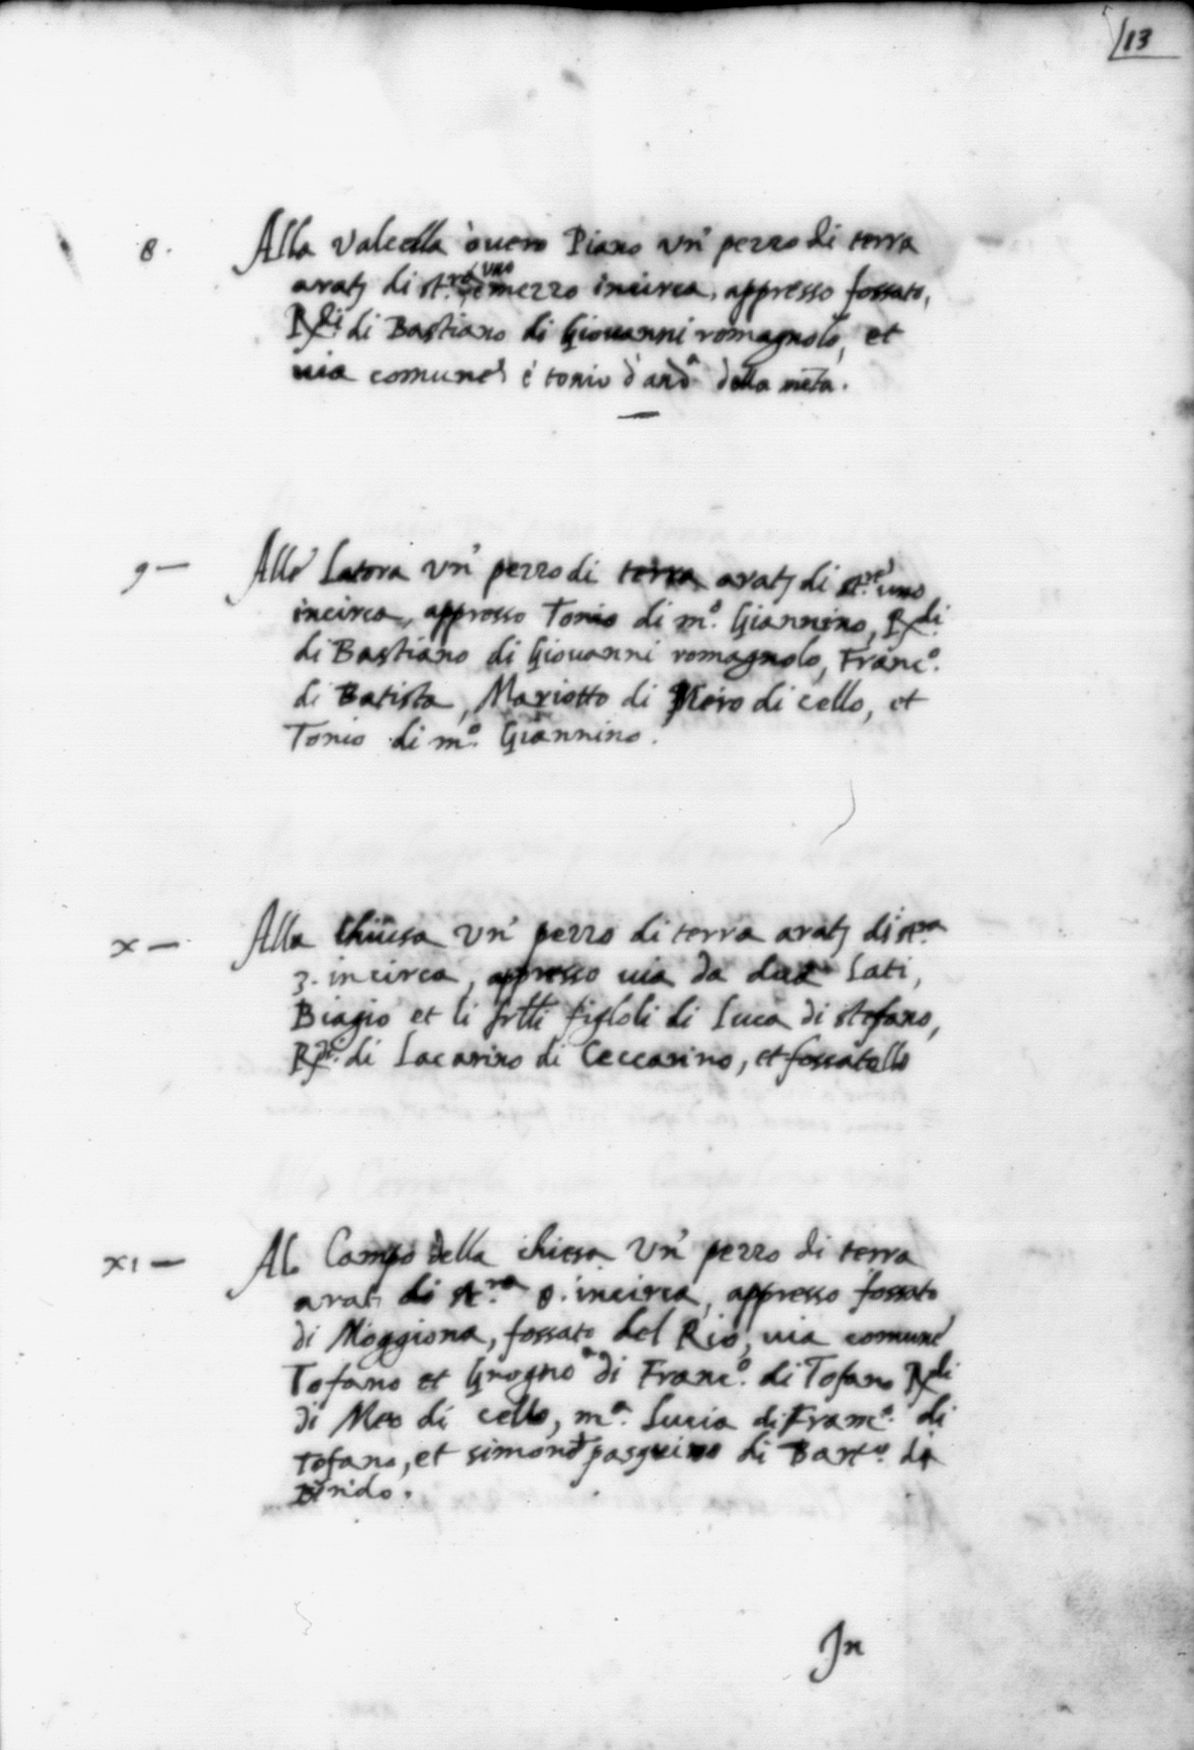 13
8. Alla valcella ò uero Piano un' pezzo di terra
arat; di st.ro uno e mezzo incirca, appresso fossato,
Rdi di Bastiano di Giouanni romagnolo, et
uia comune è tonio d'
della meta.
9 — Alle Latora un' pezzo di terra arat; di st.re uno
incirca, appresso Tonio di m.o Giannino, Rdi
di Bastiano di Giouanni romagnolo, Franc.o
di Batista, Mariotto di Piero di cello, et
Tonio di m.o Giannino.
x — Alla Chiusa un' pezzo di terra arat; di st.ra
3. incirca, appresso uia da dua lati,
Biagio et li frlli figloli di Luca di stefano,
Rdi di Lacarino di Ceccarino, et fossatello
xi — Al Campo della chiesa un' pezzo di terra
arat; di st.ra 8. incirca, appresso fossato
di Moggiona, fossato del Rio, uia comune
Tofano et Grogno di Franc.o di Tofano Rdi
di Meo di cello, m.a Lucia di Franc.o di
Tofano, et simone pasquino di Bart.o di
Bindo.
In